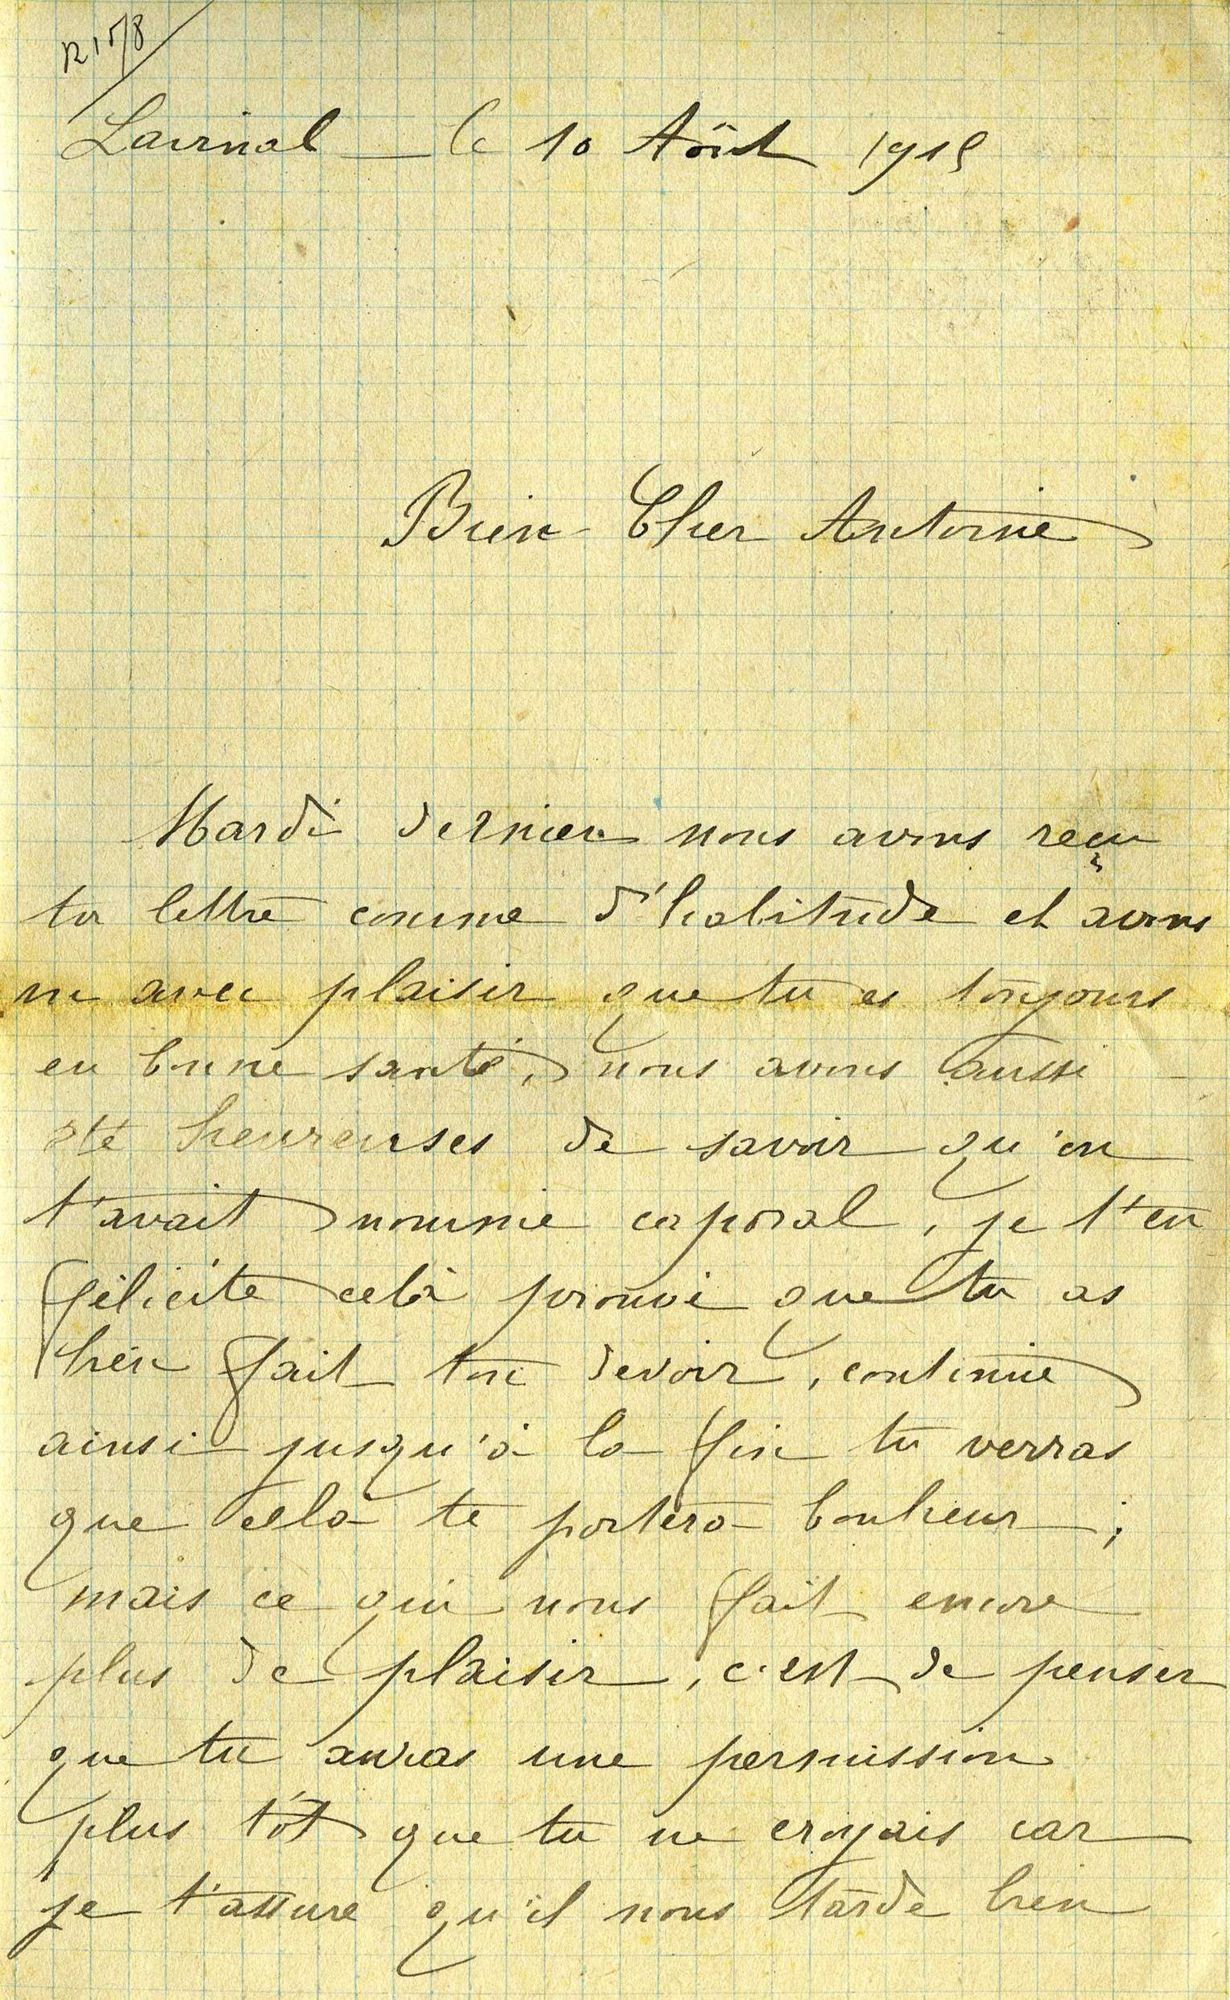 R 158
Lavinal le 10 Août 1915
Bien Cher Antoine
Mardi dernier nous avons reçu
ta lettre comme d'habitude et avons
vu avec plaisir que tu es toujours
en bonne santé, nous avons aussi
été heureuses de savoir qu'on
t'avait nommé caporal, je t'en
félicite celà prouve que tu as
bien fait ton devoir, continue
ainsi jusqu'à la fin tu verras
que celà te portera bonheur ;
mais ce qui nous fait encore
plus de plaisir, c'est de penser
que tu auras une permission
plus tôt que tu ne croyais car
je t'assure qu'il nous tarde bien